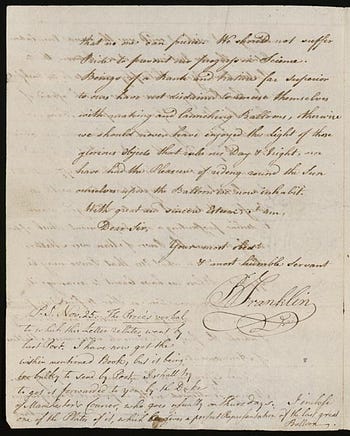 that no one can furnish. We should not suffer
Pride to prevent our progress in Science.
Beings of a Rank and Nature far superior
to ours have not disdained to amuse themselves
with making and launching Balloons, otherwise
we should never have enjoyed the Light of those
glorious objects that rule our Day & Night, nor
have had the Pleasure of riding round the Sun
ourselves upon the Balloon we now inhabit.
With great and sincere Esteem, I am,
Dear Sir,
Your most obedt
& most humble Servant
B Franklin
P.S. Nov. 25. The Procès verbal
to which this Letter relates, went by
last Post. I have now got the
within mentioned Books, but it being
too bulky to send by Post, I shall try
to get it forwarded to you by the Duke
of Manchester's Courier, who goes usually on Thursdays. I inclose
one of the Plates of it, which gives a perfect Representation of the last great
Balloon.